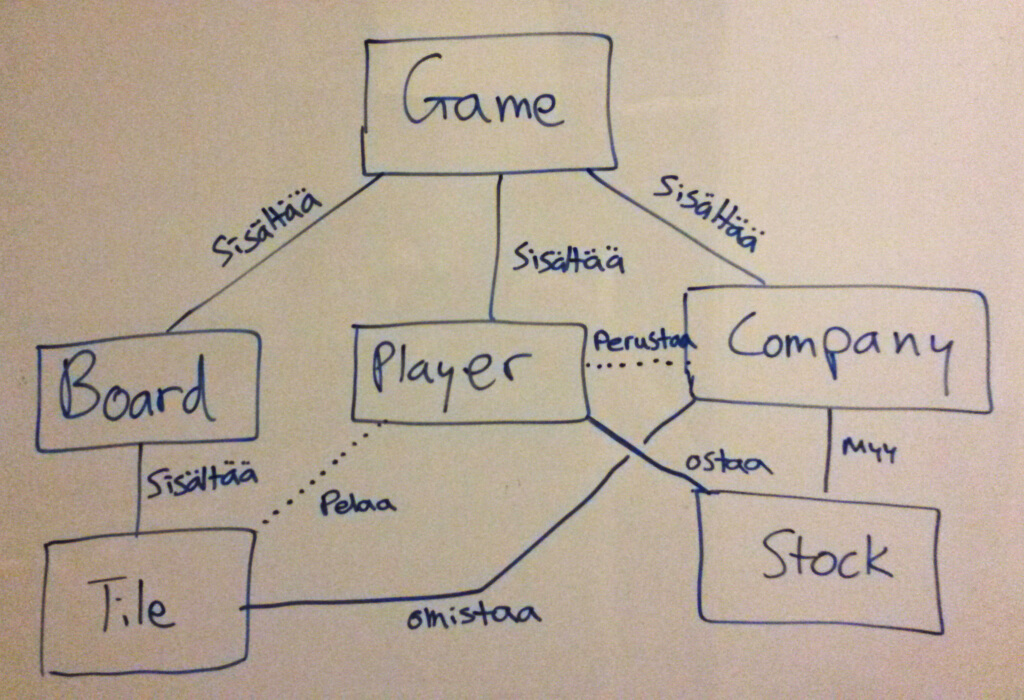 Game
Sisältää
Sisältää
Sisältää
Board
Player
Perustaa
Company
Sisältää
Pelaa
ostaa
Myy
Tile
omistaa
Stock